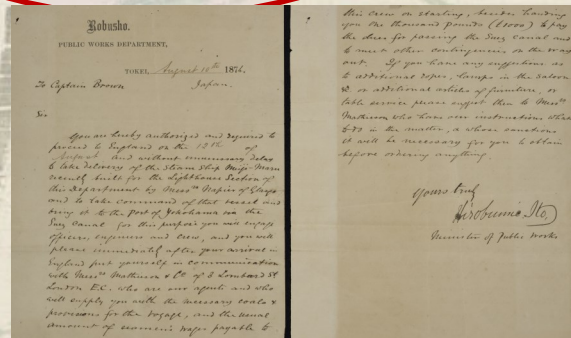 Kobusho.
PUBLIC WORKS DEPARTMENT,
TOKEI, August 10th 1874.
To Captain Brown Japan.
Sir
You are hereby authorized and required to
proceed to England on the 12th of
August and without unnecessary delay
to take delivery of the Steam Ship Meiji Maru
recently built for the Lighthouse Section of
this Department by Messrs Napier of Glasgow
and to take command of that vessel and
bring it to the Port of Yokohama via the
Suez Canal for this purpose you will engage
officers, engineers and crew, and you will
please immediately after your arrival in
England put yourself in communication
with Messrs Matheson & Co of 3 Lombard St
London E.C. who are our agents and who
will supply you with the necessary coals &
provisions for the voyage, and the usual
amount of seamen's wages payable to
this crew on starting, besides handing
you one thousand pounds (£1000) to pay
the dues for passing the Suez Canal and
to meet other contingencies on the way
out. If you have any suggestions as
to additional ropes, lamps in the saloon
&c or additional articles of furniture, or
table service please suggest them to Messrs
Matheson who have our instructions what
to do in the matter, & whose sanctions
it will be necessary for you to obtain
before ordering anything.
Yours truly
Hirobumi Ito,
Minister of Public Works